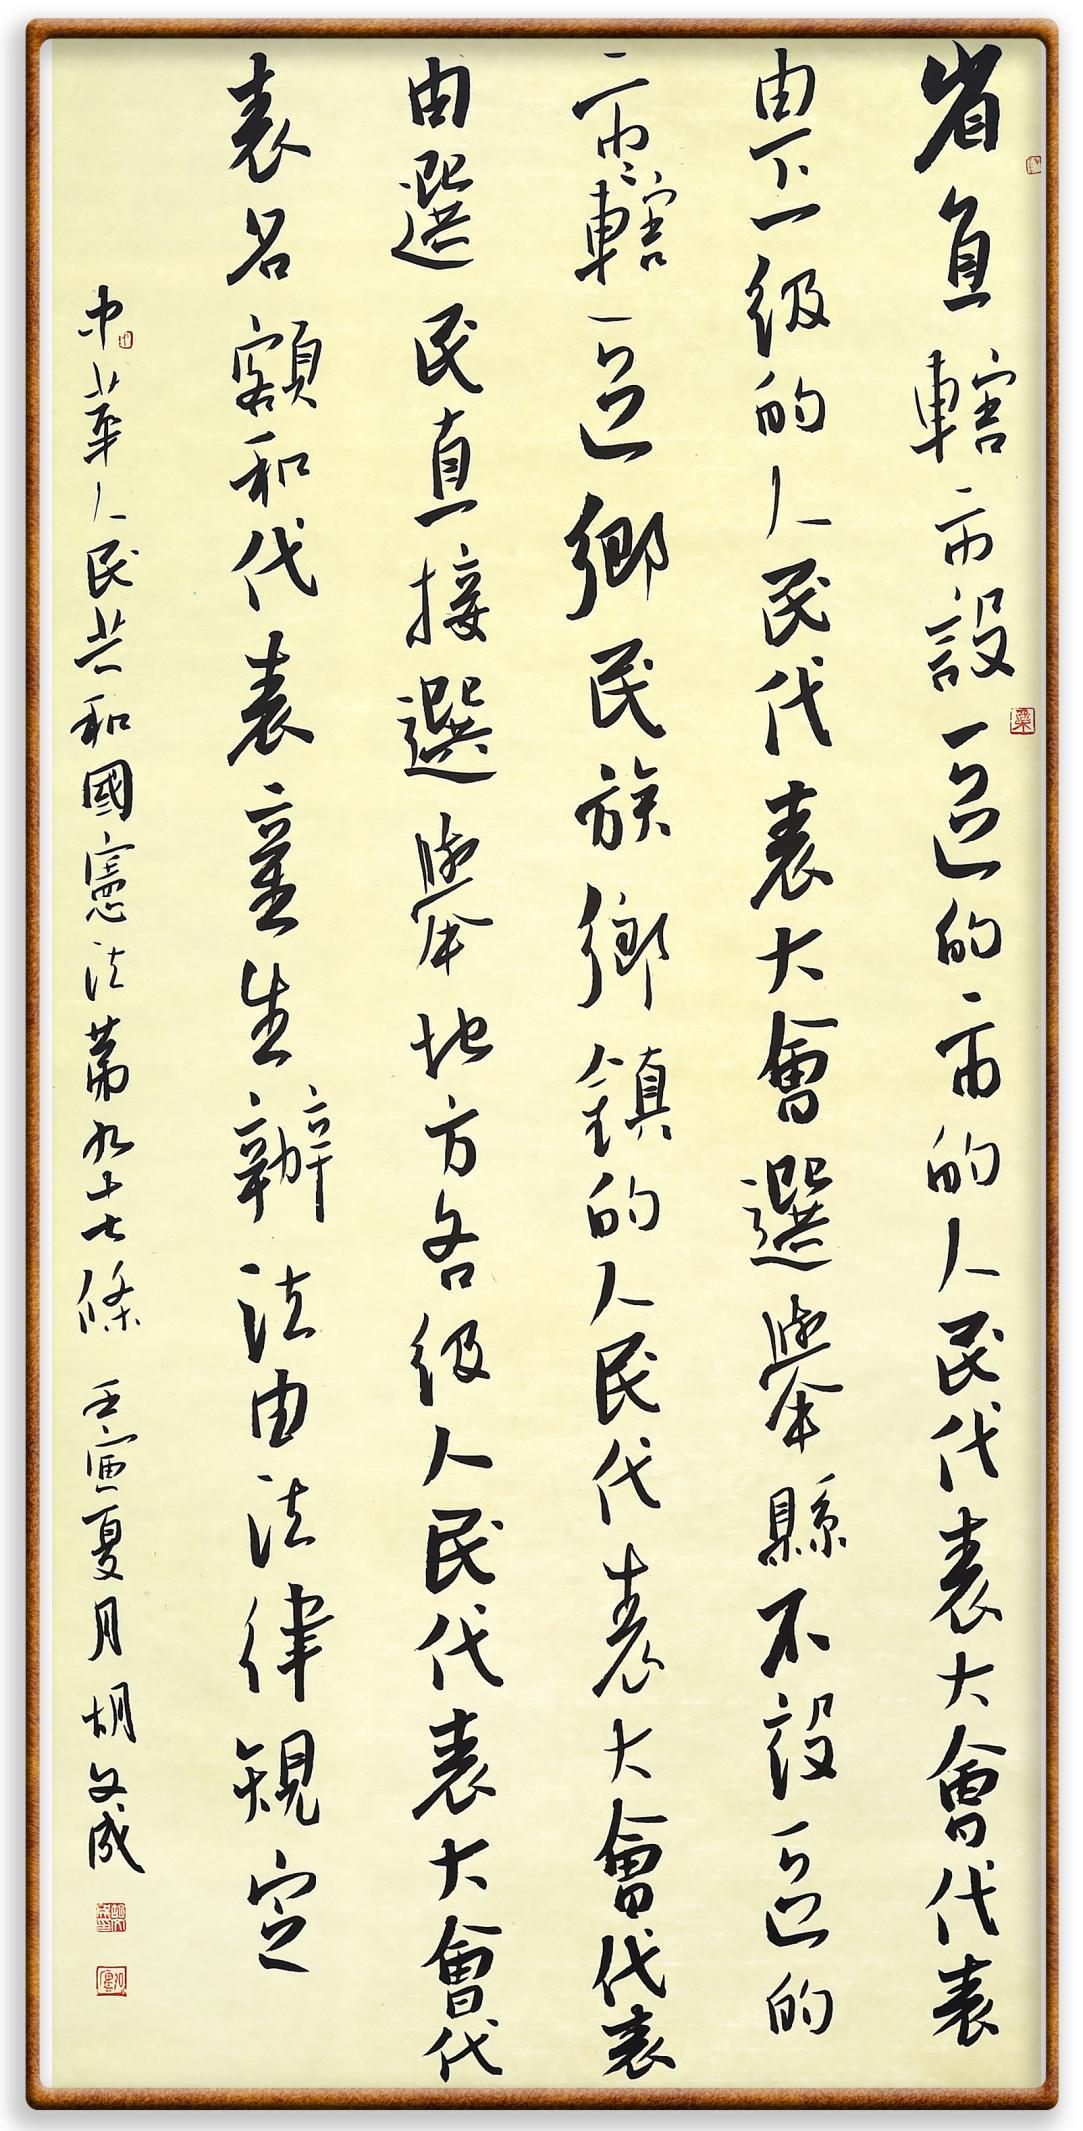 省直轄市設區的市的人民代表大會代表
由下一級的人民代表大會選舉縣不設區的
市〻轄區鄉民族鄉鎮的人民代表大會代表
由選民直接選舉地方各級人民代表大會代
表名額和代表產生辦法由法律規定
中華人民共和國憲法第九十七條 壬寅夏月 胡文成